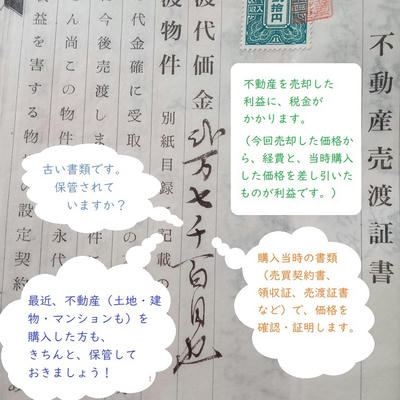 不動産売渡証書
渡代価金
弐万七千百円也
渡物件 別紙目録記載の
代金確に受取
に今後売渡しま
件に
さん尚この物件
永代
益を害する物
の設定契約
不動産を売却した
利益に、税金が
かかります。
(今回売却した価格か
ら、経費と、当時購入
した価格を差し引いた
ものが利益です。)
古い書類です。
保管されて
いますか?
購入当時の書類
(売買契約書、
領収証、売渡証書
など)で、価格を
確認・証明します。
最近、不動産(土地・建
物・マンションも)を
購入した方も、
きちんと、保管して
おきましょう!